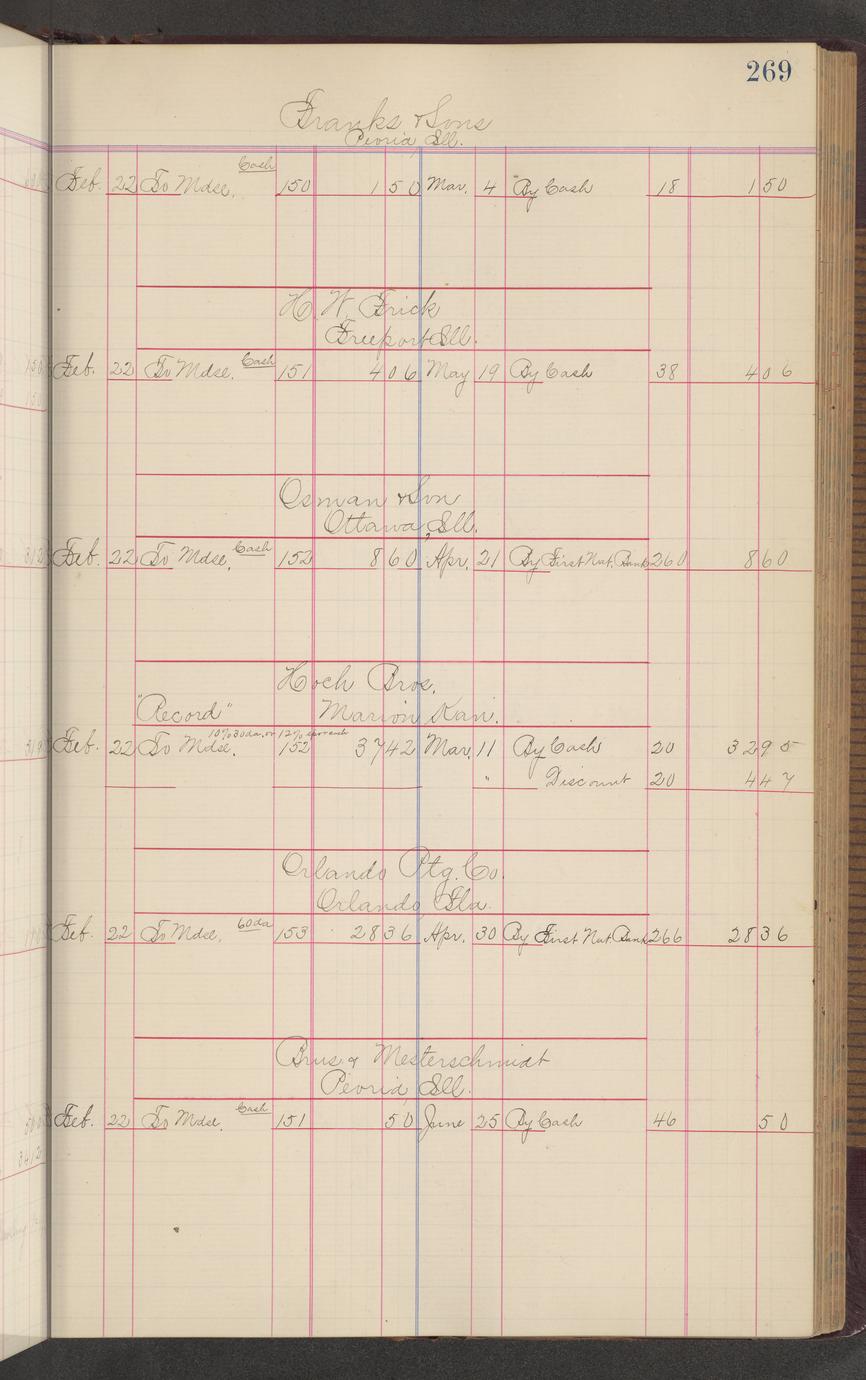 269
Franks & Sons
Peoria, Ill.
Cash
Feb. 22 To Mdse. 150 1 50 Mar. 4 By Cash 18 1 50
H. W. Frick
Freeport Ill.
Feb. 22 To Mdse. Cash 151 4 06 May 19 By Cash 38 4 06
Osman & Son
Ottawa, Ill.
Feb. 22 To Mdse. Cash 152 8 60 Apr. 21 By First Nat. Bank 260 8 60
Hoch Bros.
"Record" Marion Kan.
10% 30 da. or 12%
Feb. 22 To Mdse. 152 37 42 Mar. 11 By Cash 20 32 95
" Discount 20 4 47
Orlando Ptg. Co.
Orlando, Fla.
Feb. 22 To Mdse. 60 da 153 28 36 Apr. 30 By First Nat. Bank 266 28 36
Brus & Mesterschmidt
Peoria, Ill.
Feb. 22 To Mdse. Cash 151 50 June 25 By Cash 46 50